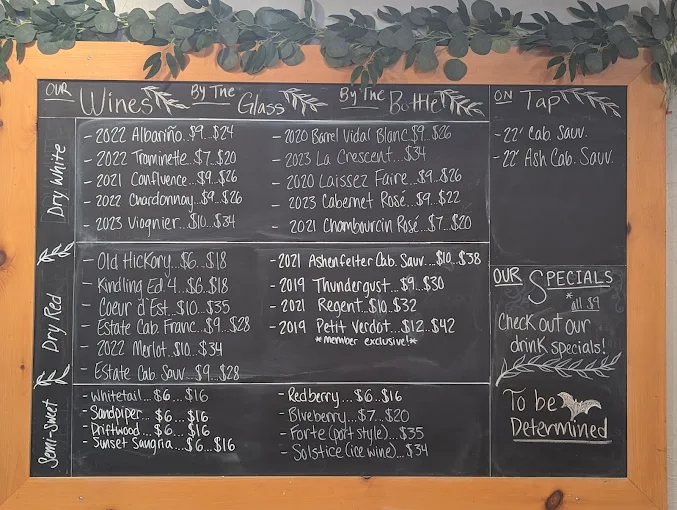 OUR Wines By The Glass By The Bottle
Dry White
- 2022 Albariño..$9..$24
- 2022 Traminette..$7..$20
- 2021 Confluence...$9...$26
- 2022 Chardonnay...$9...$26
- 2023 Viognier...$10...$34
- 2020 Barrel Vidal Blanc $9..$26
- 2023 La Crescent....$34
- 2020 Laissez Faire...$9..$26
- 2023 Cabernet Rosé...$9...$22
- 2021 Chambourcin Rosé..$7...$20
Dry Red
- Old Hickory...$6...$18
- Kindling Ed. 4...$6...$18
- Coeur d'Est...$10...$35
- Estate Cab Franc...$9...$28
- 2022 Merlot..$10...$34
- Estate Cab. Sauv...$9...$28
- 2021 Ashenfelter Cab. Sauv...$10..$38
- 2019 Thundergust...$9...$30
- 2021 Regent..$10..$32
- 2019 Petit Verdot...$12...$42
*member exclusive!*
Semi-Sweet
- Whitetail...$6...$16
- Sandpiper...$6...$16
- Driftwood...$6...$16
- Sunset Sangria...$6...$16
- Redberry...$6..$16
- Blueberry...$7...$20
- Forte (port style)...$35
- Solstice (ice wine)...$34
ON Tap
- 22' Cab. Sauv.
- 22' Ash Cab. Sauv.
OUR SPECIALS
* all $9
Check out our
drink specials!
To be
Determined